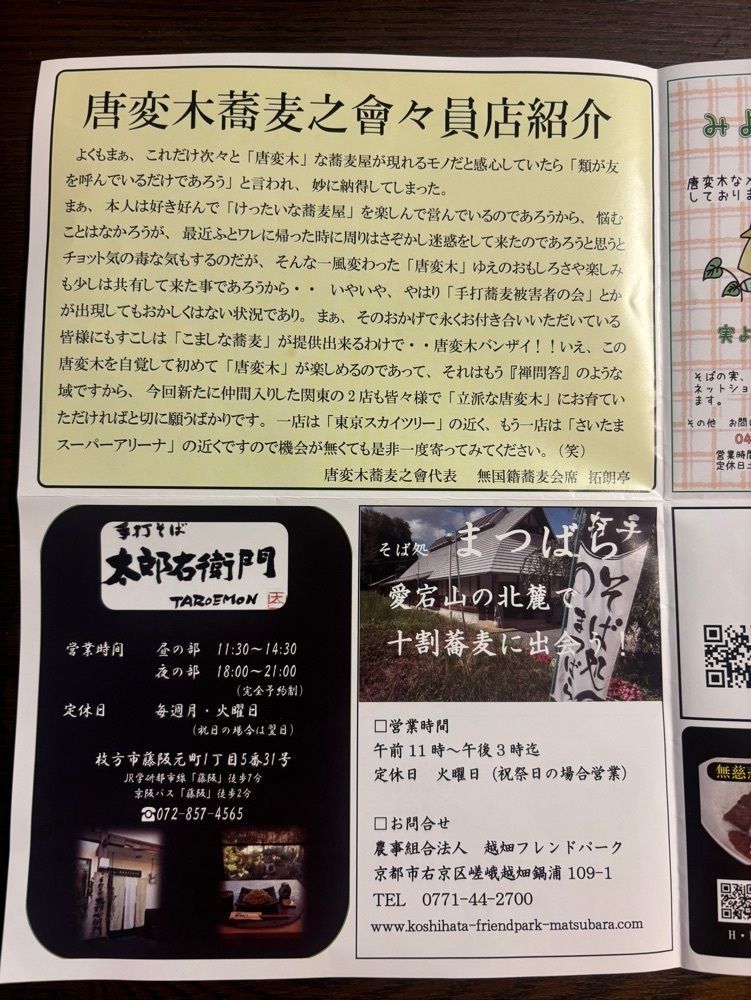 唐変木蕎麦之會々員店紹介
よくもまぁ、これだけ次々と「唐変木」な蕎麦屋が現れるモノだと感心していたら「類が友
を呼んでいるだけであろう」と言われ、妙に納得してしまった。
まぁ、本人は好き好んで「けったいな蕎麦屋」を楽しんで営んでいるのであろうから、悩む
ことはなかろうが、最近ふとワレに帰った時に周りはさぞかし迷惑をして来たのであろうと思うと
チョット気の毒な気もするのだが、そんな一風変わった「唐変木」ゆえのおもしろさや楽しみ
も少しは共有して来た事であろうから・・ いやいや、やはり「手打蕎麦被害者の会」とか
が出現してもおかしくはない状況であり。まぁ、そのおかげで永くお付き合いいただいている
皆様にもすこしは「こましな蕎麦」が提供出来るわけで・・唐変木バンザイ！！いえ、この
唐変木を自覚して初めて「唐変木」が楽しめるのであって、それはもう『禅問答』のような
域ですから、今回新たに仲間入りした関東の2店も皆々様で「立派な唐変木」にお育てい
ただければと切に願うばかりです。一店は「東京スカイツリー」の近く、もう一店は「さいたま
スーパーアリーナ」の近くですので機会が無くても是非一度寄ってみてください。（笑）
唐変木蕎麦之會代表 無国籍蕎麦会席 拓朗亭
手打そば
太郎右衛門
TAROEMON 太
営業時間 昼の部 11:30～14:30
夜の部 18:00～21:00
（完全予約制）
定休日 毎週月・火曜日
（祝日の場合は翌日）
枚方市藤阪元町1丁目5番31号
JR学研都市線「藤阪」徒歩7分
京阪バス「藤阪」徒歩2分
☎072-857-4565
そば処 まつばら
愛宕山の北麓で
十割蕎麦に出会う！
手打
そば処
まつばら
□営業時間
午前11時～午後3時迄
定休日 火曜日（祝祭日の場合営業）
□お問合せ
農事組合法人 越畑フレンドパーク
京都市右京区嵯峨越畑鍋浦109-1
TEL 0771-44-2700
www.koshihata-friendpark-matsubara.com
みよ
唐変木なメ
しておりま
実よ
そばの実、
ネットショ
ます。
その他 お問い
04
営業時間
定休日土
無慈悲
H・P